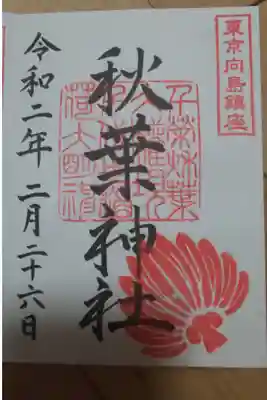 東京向島鎮座
秋葉神社
令和二年 二月二十六日